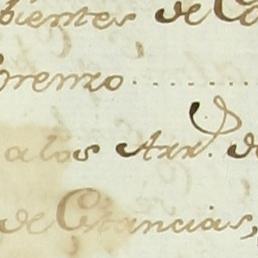 bientes de Ca
orenzo .........
a los Arr.s de
de Estancias,